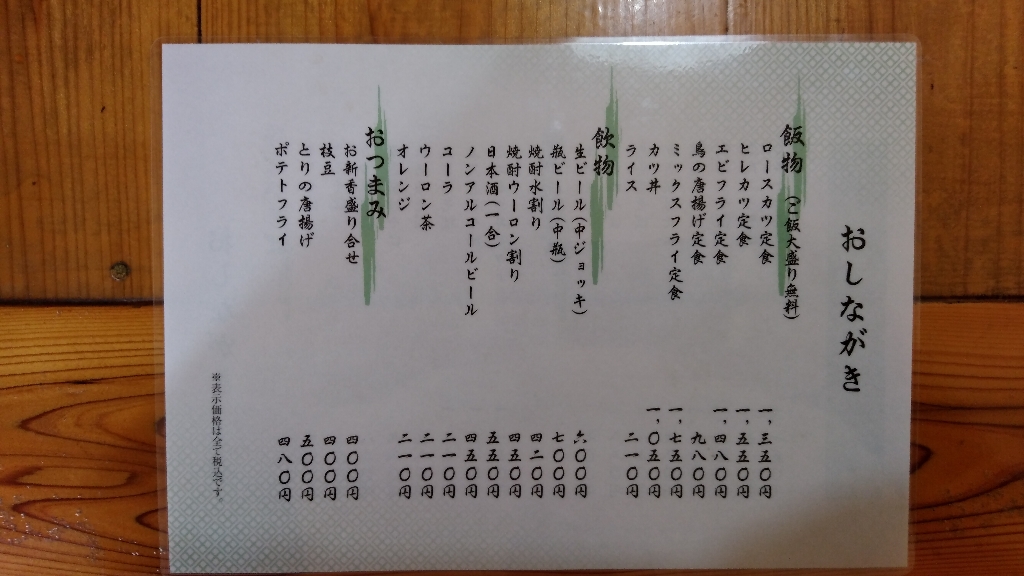 おしながき
飯物 (ご飯大盛り無料)
ロースカツ定食 一,三五〇円
ヒレカツ定食 一,五五〇円
エビフライ定食 一,四八〇円
鳥の唐揚げ定食 九八〇円
ミックスフライ定食 一,七五〇円
カツ丼 一,〇五〇円
ライス 二一〇円
飲物
生ビール(中ジョッキ) 六〇〇円
瓶ビール(中瓶) 七〇〇円
焼酎水割り 四二〇円
焼酎ウーロン割り 四五〇円
日本酒(一合) 五五〇円
ノンアルコールビール 四五〇円
コーラ 二一〇円
ウーロン茶 二一〇円
オレンジ 二一〇円
おつまみ
お新香盛り合せ 四〇〇円
枝豆 四〇〇円
とりの唐揚げ 五〇〇円
ポテトフライ 四八〇円
※表示価格は全て税込です。